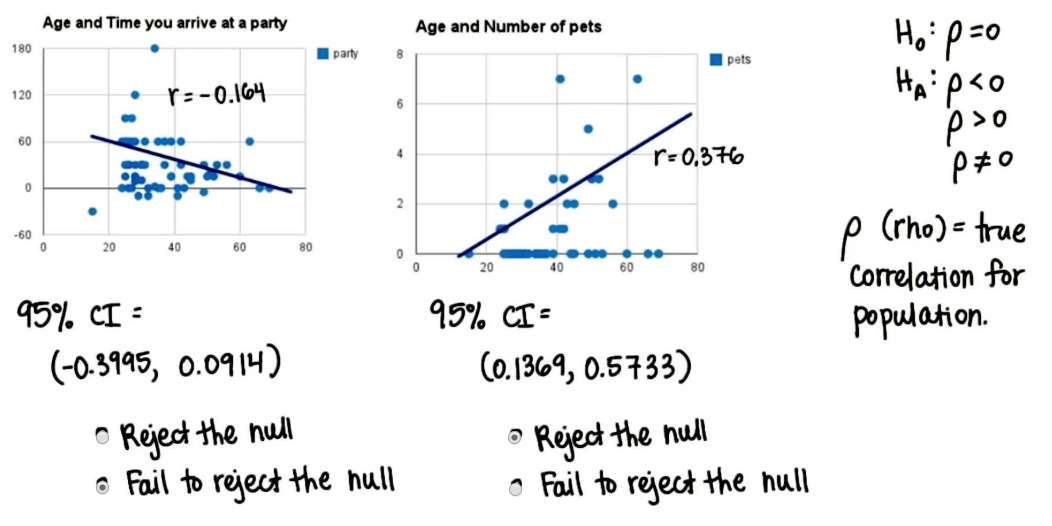 Age and Time you arrive at a party
180
120
60
0
-60
0 20 40 60 80
party
r = -0.164
95% CI =
(-0.3995, 0.0914)
Reject the null
Fail to reject the null
Age and Number of pets
8
6
4
2
0
0 20 40 60 80
pets
r = 0.376
95% CI =
(0.1369, 0.5733)
Reject the null
Fail to reject the null
H₀: ρ = 0
H_A: ρ < 0
ρ > 0
ρ ≠ 0
ρ (rho) = true
correlation for
population.